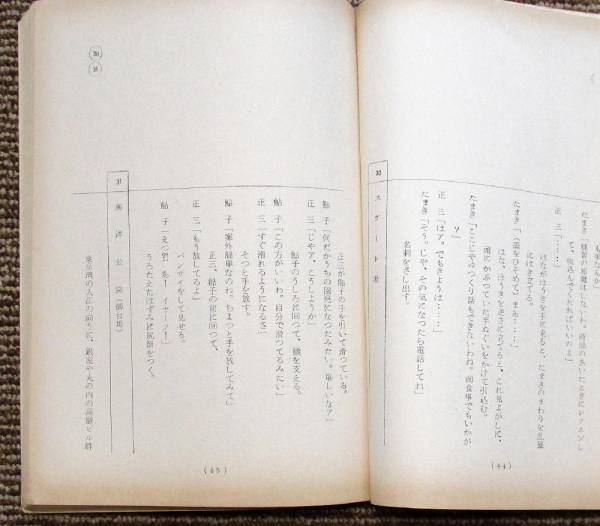 も来なんか
たまき「
て、飛込んでくればいいのよ」
正三「‥‥」
はたがほうきを手に来ると、たまきのまわりを乱暴
にはき立てる。
たまき「(顔をひそめて)まあ‥‥」
はな、ほうきを逆さに立てると、これ見よがしに、
頭にかぶっていた手ぬぐいをかけて引込む。
たまき「ここじゃゆっくり話もできないわね。御食事でもいかが
?」
正三「はア。でもきょうは‥‥」
たまき「そう。じゃ、その気になったら電話してね」
名刺をさし出す。
30 スケート場
(44)
正三が鮎子の手を引いて滑っている。
鮎子「何だかうちの園児になったみたい。楽しいなァ」
正三「じゃア、こうしようか」
鮎子のうしろに回って、腰を支える。
鮎子「この方がいいわ。自分で滑ってるみたい」
正三「すぐ滑れるようになるさ」
そっと手を放す。
鮎子「案外簡単なのね。ちょっと手を放してみて」
正三、鮎子の前に回って、
正三「もう放してるよ」
バンザイをして見せる。
鮎子「えっ?! あ! イヤーン!」
うろたえたはずみに尻餅をつく。
31 海洋公園(御台場)
東京湾の入江の向うに、銀座や丸の内の高層ビル群
(45)